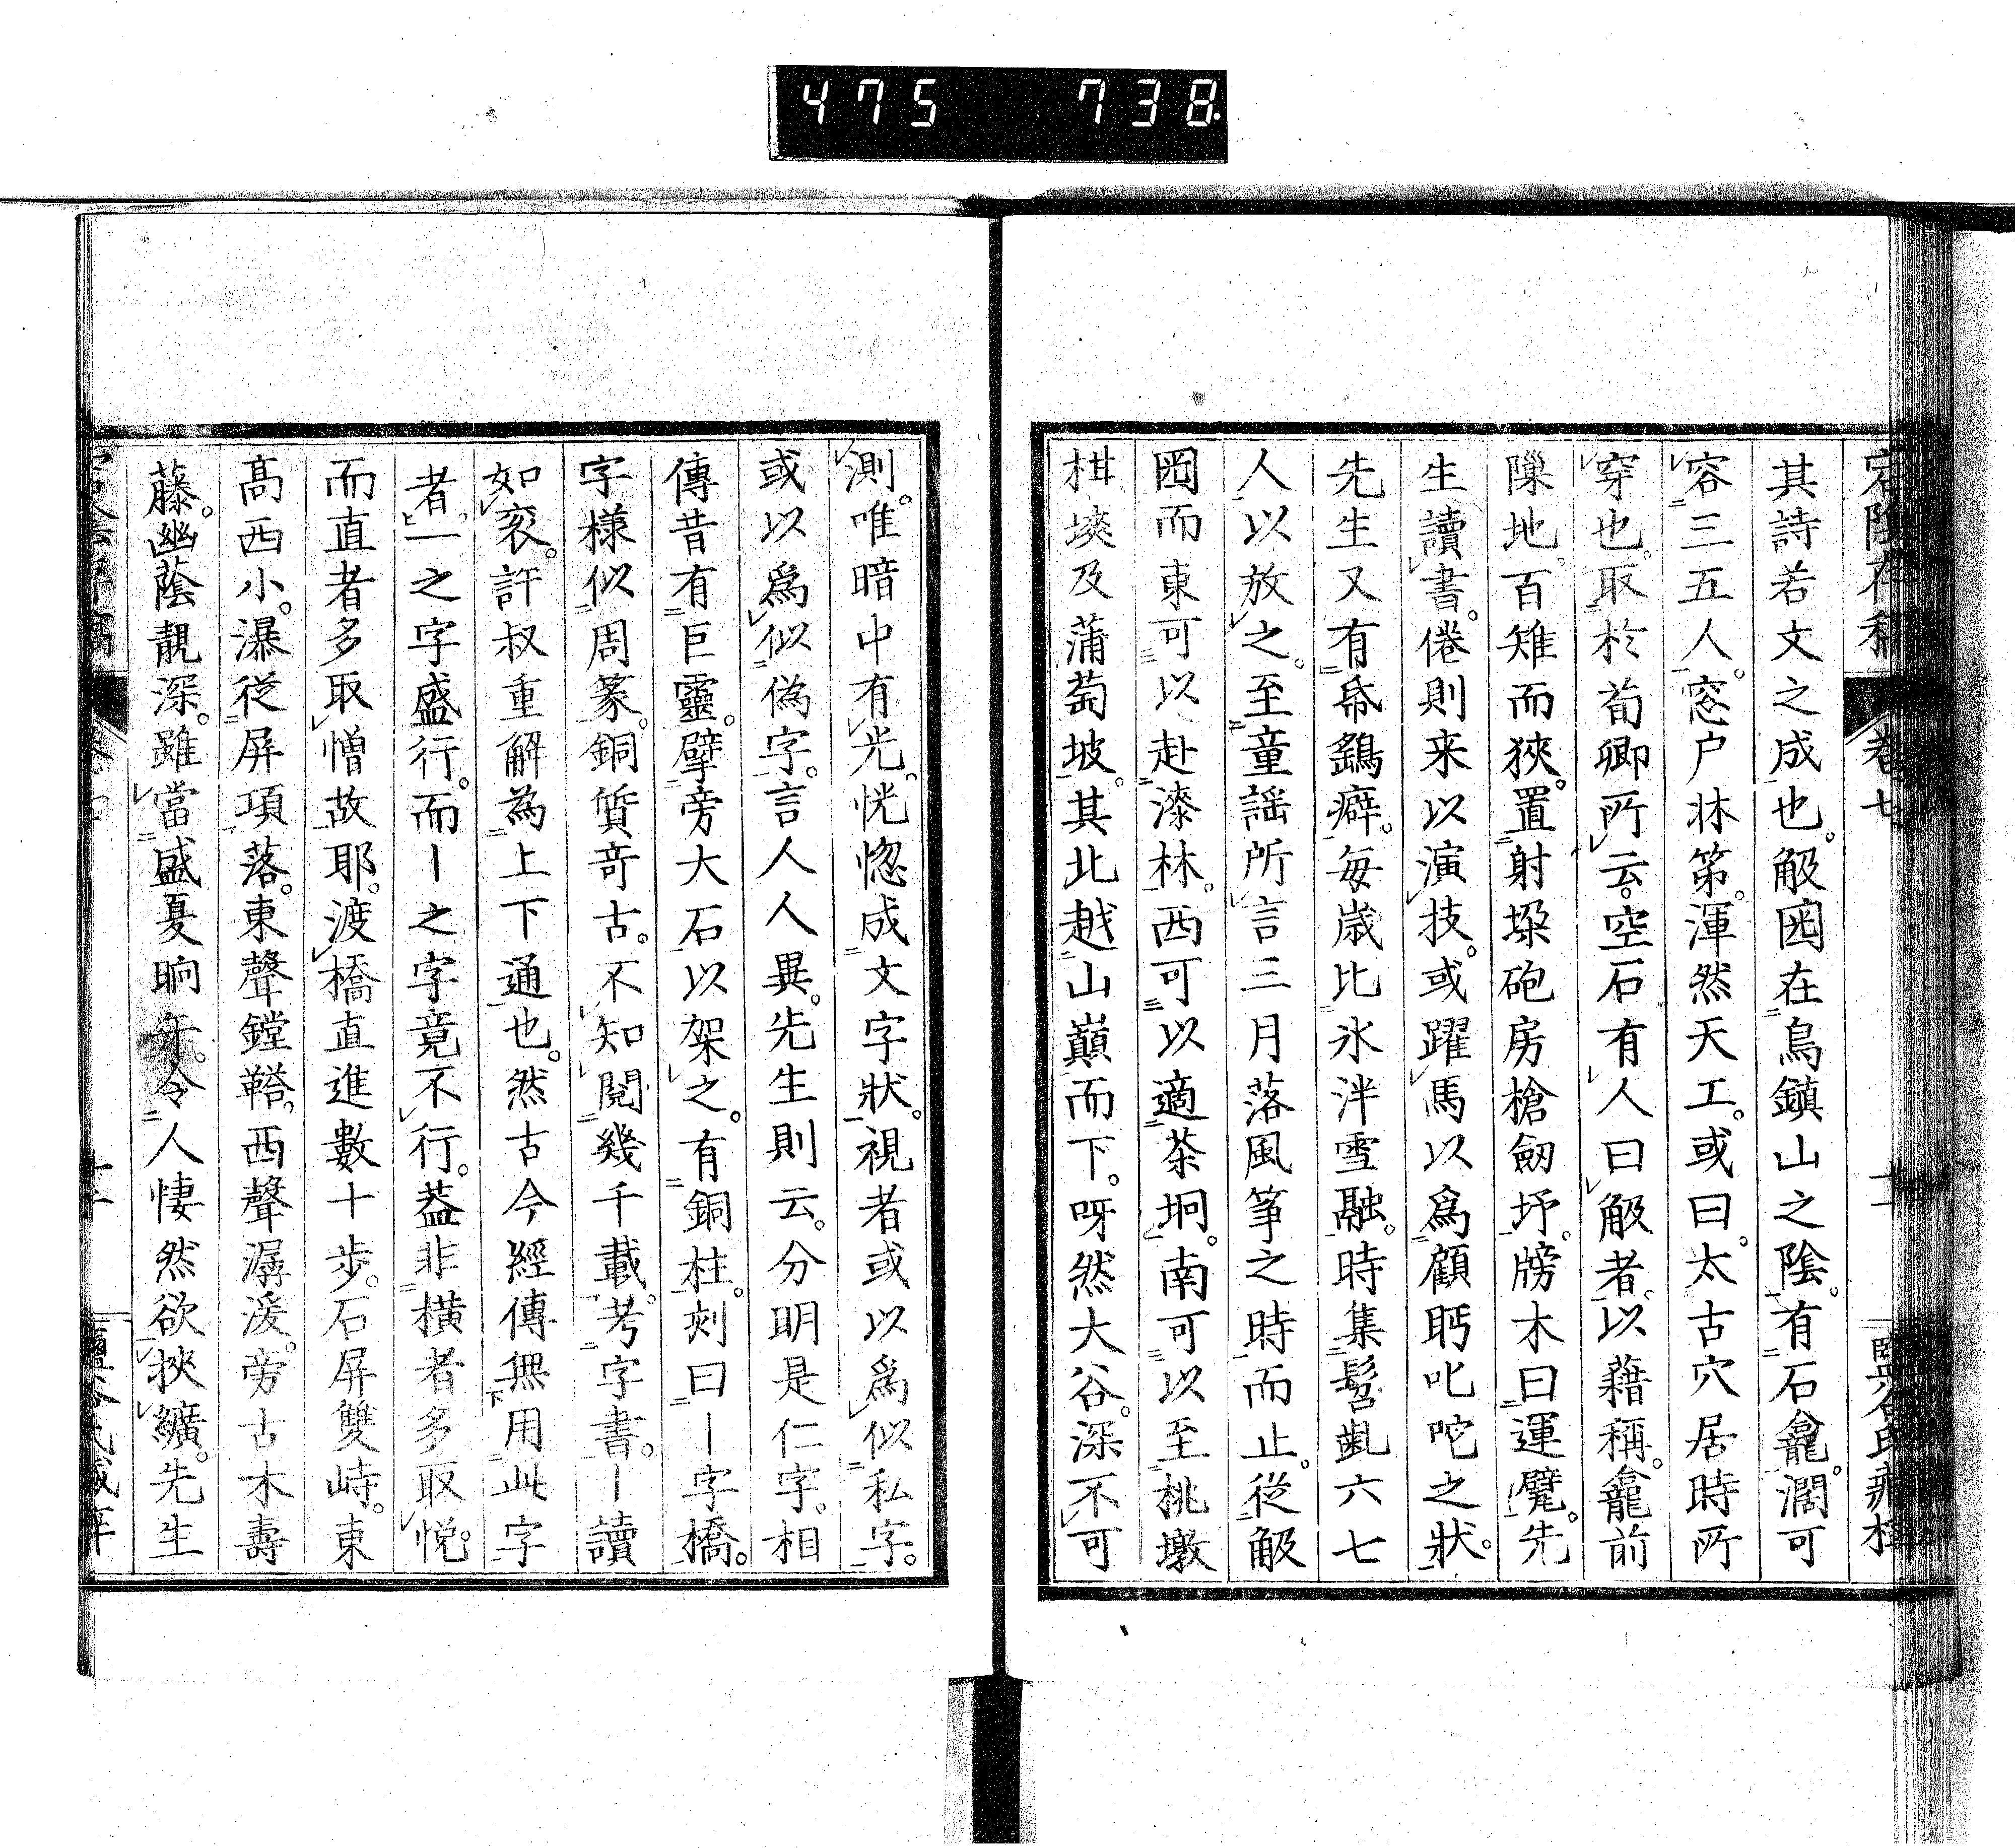 475 738.
其詩若文之成也。觙園在烏鎮山之陰。有石龕。濶可
容三五人。窓户牀笫。渾然天工。或曰。太古穴居時所
穿也。取於荀卿所云。空石有人曰觙者。以藉稱。龕前
隟地。百雉而狹。置射垜砲房槍劒圩。牓木曰運甓。先
生讀書。倦則来以演技。或躍馬以爲顧眄叱咤之狀。
先生又有帋鷂癖。毎歳比氷泮雪融。時集髫齔六七
人以放之。至童謡所言三月落風箏之時而止。從觙
園而東可以赴漆林。西可以適茶坰。南可以至桃墩
柑堗及蒲萄坡。其北越山巓而下。呀然大谷。深不可
測。唯暗中有光。恍惚成文字狀。視者或以爲似私字。
或以爲似偽字。言人人異。先生則云。分明是仁字。相
傳昔有巨靈。擘旁大石以架之。有銅柱。刻曰丨字橋。
字様似周篆。銅質竒古。不知閲幾千載。考字書。丨讀
如衮。許叔重解為上下通也。然古今經傳無用此字
者。一之字盛行。而丨之字竟不行。葢非橫者多取悦。
而直者多取憎故耶。渡橋直進數十歩。石屏雙峙。東
髙西小。瀑從屏項落。東聲鏜鞳。西聲潺湲。旁古木壽
藤。幽蔭靚深。雖當盛夏晌午。令人悽然欲挾纊。先生